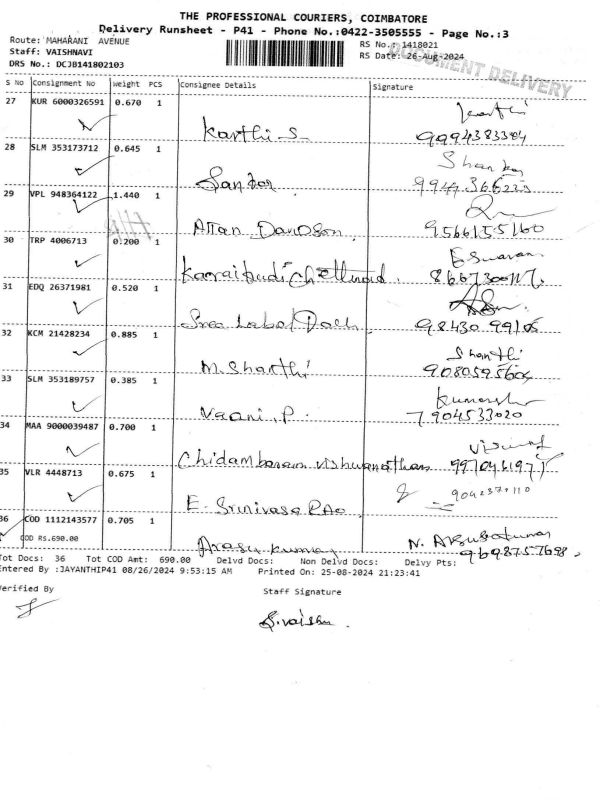 THE PROFESSIONAL COURIERS, COIMBATORE
Delivery Runsheet - P41 - Phone No.:0422-3505555 - Page No.:3
Route: MAHARANI AVENUE RS No.: 1418021
Staff: VAISHNAVI RS Date: 26-Aug-2024
DRS No.: DCJB141802103
DOCUMENT DELIVERY
S No Consignment No Weight PCS Consignee Details Signature
27 KUR 6000326591 0.670 1
Karthi S 9994383384
28 SLM 353173712 0.645 1 Shankar
Sankar
29 VPL 948364122 1.440 1
Allan Davidson 9566155160
30 TRP 4006713 0.200 1 Eswaran
Karaikudi Chettinad
31 EDQ 26371981 0.520 1
Sree 98430 99105
32 KCM 21428234 0.885 1 Shanthi
M. Sharthi 9080595604
33 SLM 353189757 0.385 1
Vaani. P. 7904533020
34 MAA 9000039487 0.700 1
Chidambaram Vishwanathan
35 VLR 4448713 0.675 1 9042371110
E. Srinivasa Rao
36 COD 1112143577 0.705 1
COD RS.690.00 N.
Arasu kumar 9698757698.
Tot Docs: 36 Tot COD Amt: 690.00 Delvd Docs: Non Delvd Docs: Delvy Pts:
Entered By :JAYANTHIP41 08/26/2024 9:53:15 AM Printed On: 25-08-2024 21:23:41
Verified By Staff Signature
S.vaishu.